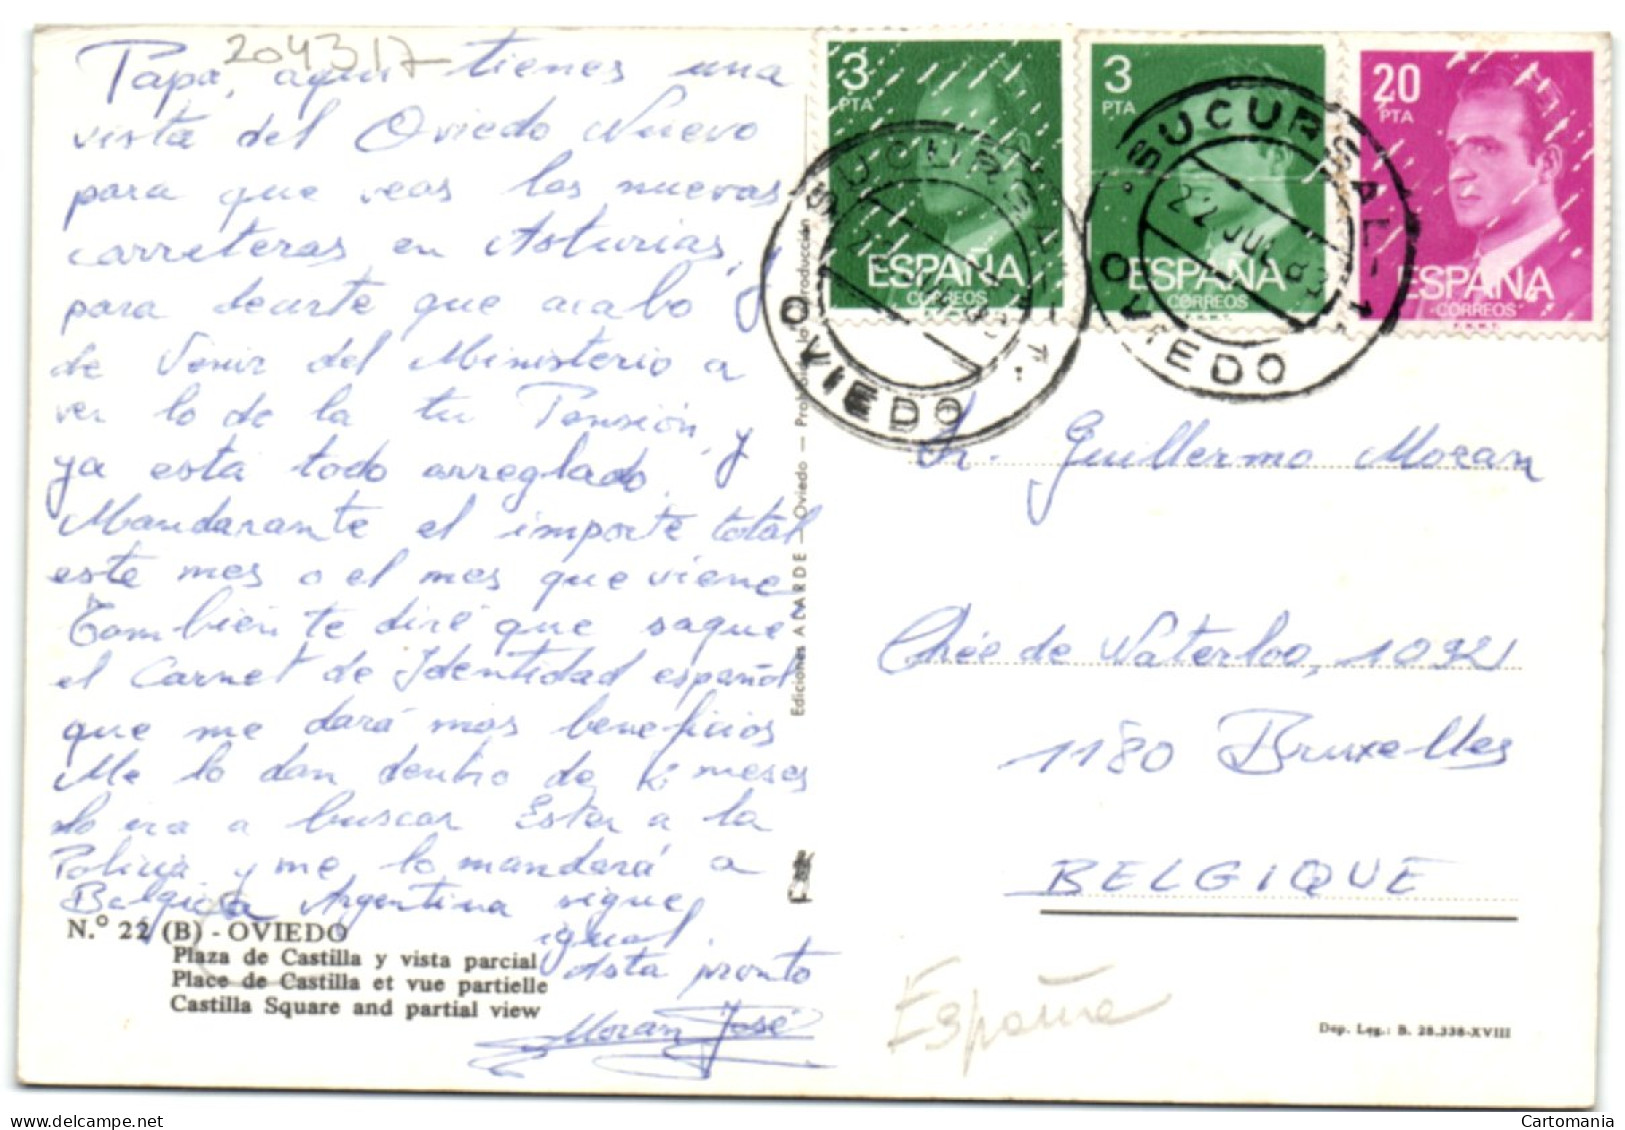 204317
Papa, aqui tienes una
vista del Oviedo Nuevo
para que veas las nuevas
carreteras en Asturias, y
para decirte que acabo
de Venir del Ministerio a
ver lo de la tu Pensión, y
ya está todo arreglado,
Mandarante el importe total
este mes o el mes que viene
También te diré que saque
el Carnet de Identidad español
que me dará mas beneficios
Me lo dan dentro de meses
a buscar Esta a la
Policia y me lo mandará a
Belgica Argentina sigue
igual
Asta pronto
Moran José
N.º 22 (B) - OVIEDO
Plaza de Castilla y vista parcial
Place de Castilla et vue partielle
Castilla Square and partial view
Ediciones ALARDE — Oviedo — Prohibida la reproducción
3
PTA
ESPAÑA
CORREOS
F.N.M.T.
3
PTA
ESPAÑA
CORREOS
F.N.M.T.
20
PTA
ESPAÑA
CORREOS
F.N.M.T.
SUCURSAL
OVIEDO
SUCURSAL-1
22 JUL 83
OVIEDO
Sr. Guillermo Moran
Chée de Waterloo, 1092
1180 Bruxelles
BELGIQUE
España
Dep. Leg.: B. 28.338-XVIII
Cartomania